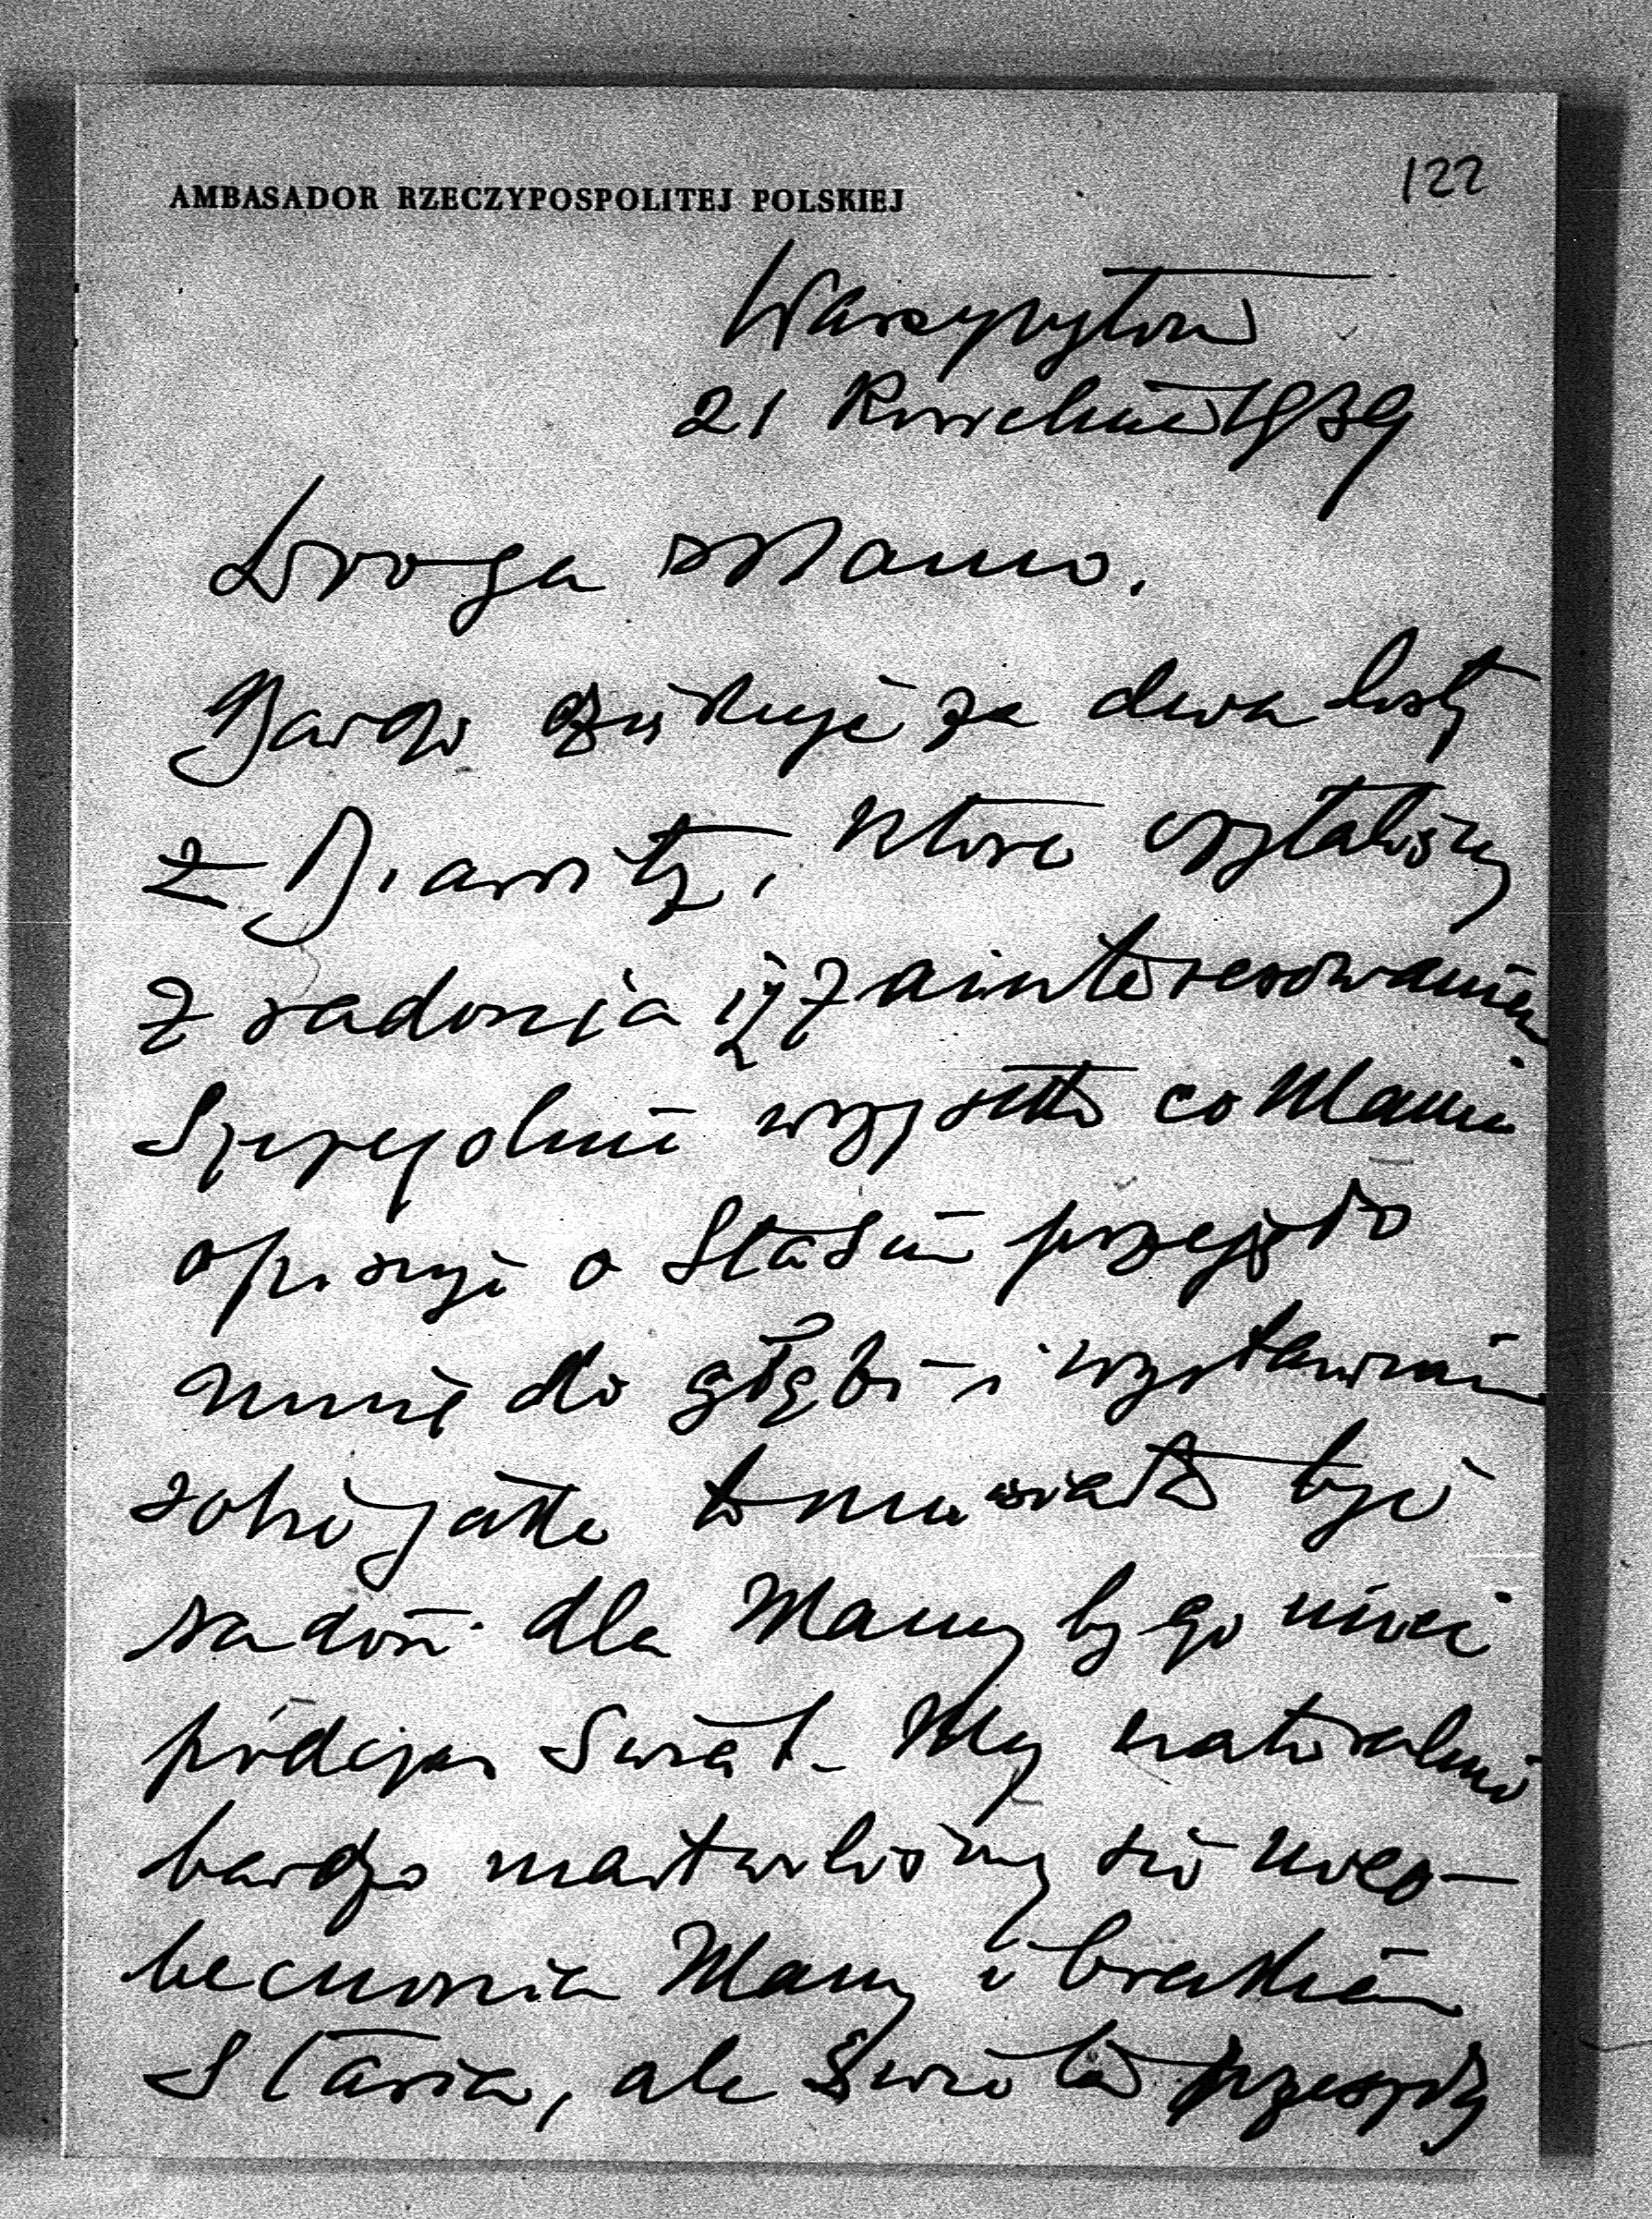 122
AMBASADOR RZECZYPOSPOLITEJ POLSKIEJ
Waszyngton
21 Kwietnia 1939
Droga Mamo.
Bardzo dziękuję za dwa listy
z Biarritz, które czytaliśmy
z radością i zainteresowaniem
Szczególnie wszystko co Mama
opisuje o Stasiu przejęło
mnie do głębi – i wystawiam
sobie jaka to musiała być
radość dla Mamy by go mieć
podczas Świąt. My naturalnie
bardzo martwiliśmy się nieo-
becnością Mamy i brakiem
Stasia, ale Święta przeszły